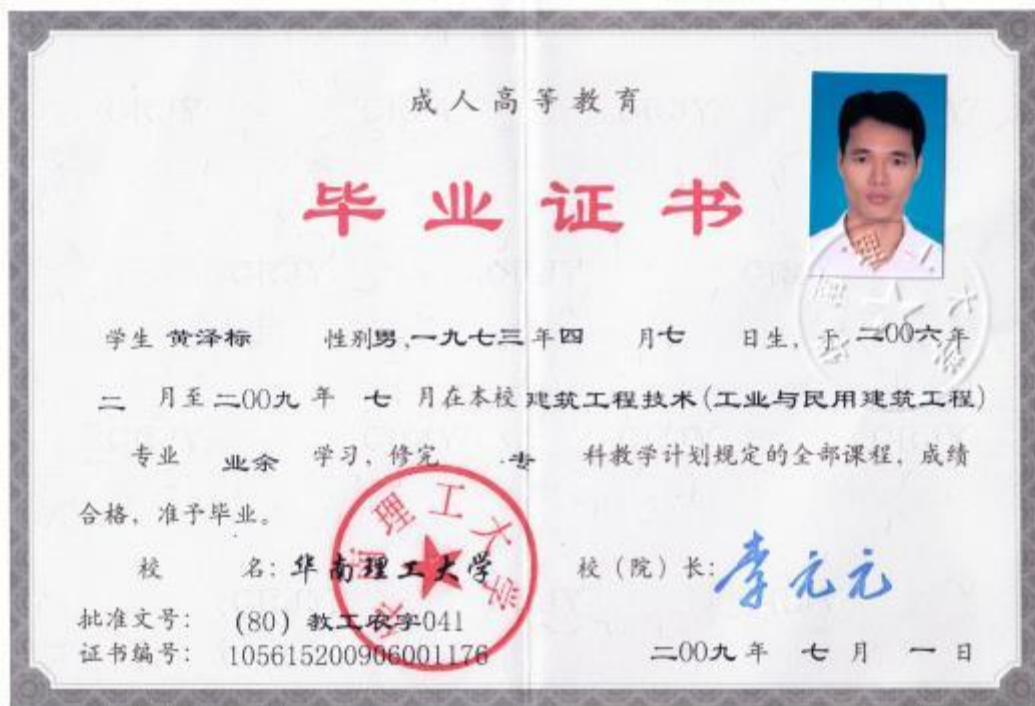 成人高等教育
毕业证书
学生 黄泽标 性别男,一九七三年四 月七 日生, 于 二00六年
二 月至二00九 年 七 月在本校 建筑工程技术(工业与民用建筑工程)
专业 业余 学习, 修完 专 科教学计划规定的全部课程, 成绩
合格, 准予毕业。
校 名: 华南理工大学 校（院）长: 李元元
批准文号: (80) 教工农字041
证书编号: 105615200906001176 二00九 年 七 月 一 日
华南理工大学